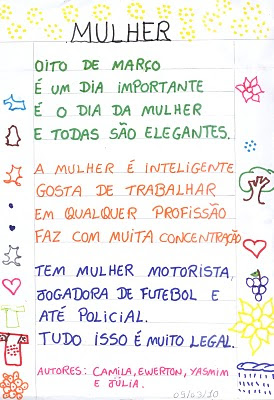 MULHER
OITO DE MARÇO
É UM DIA IMPORTANTE
É O DIA DA MULHER
E TODAS SÃO ELEGANTES.
A MULHER É INTELIGENTE
GOSTA DE TRABALHAR
EM QUALQUER PROFISSÃO
FAZ COM MUITA CONCENTRAÇÃO
TEM MULHER MOTORISTA,
JOGADORA DE FUTEBOL E
ATÉ POLICIAL.
TUDO ISSO É MUITO LEGAL.
AUTORES: CAMILA, EWERTON, YASMIM
E JÚLIA.
09/03/10